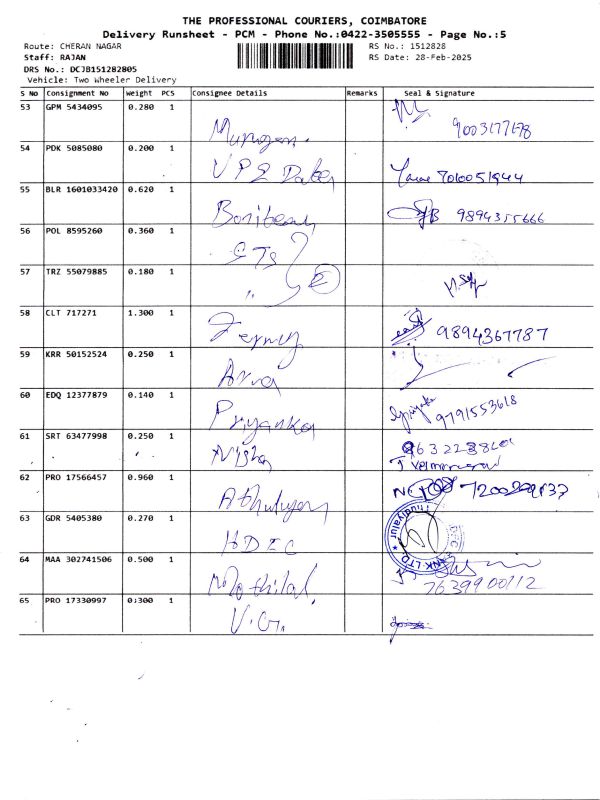 THE PROFESSIONAL COURIERS, COIMBATORE
Delivery Runsheet - PCM - Phone No.:0422-3505555 - Page No.:5
Route: CHERAN NAGAR RS No.: 1512828
Staff: RAJAN RS Date: 28-Feb-2025
DRS No.: DCJB151282805
Vehicle: Two Wheeler Delivery
S No Consignment No Weight PCS Consignee Details Remarks Seal & Signature
53 GPM 5434095 0.280 1 Murugan
54 PDK 5085080 0.200 1 7010051944
55 BLR 1601033420 0.620 1 9894355666
56 POL 8595260 0.360 1 STS
57 TRZ 55079885 0.180 1
58 CLT 717271 1.300 1 9894367787
59 KRR 50152524 0.250 1
60 EDQ 12377879 0.140 1 Priyanka Priyanka 9791553618
61 SRT 63477998 0.250 1
62 PRO 17566457 0.960 1
63 GDR 5405380 0.270 1 HDFC
64 MAA 302741506 0.500 1 Mothilal 7639900112
65 PRO 17330997 0.300 1 V.G.